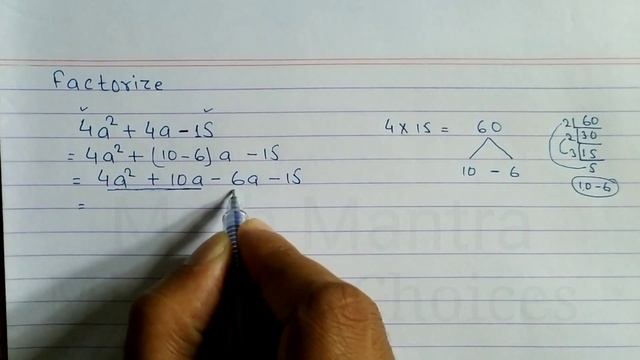 Factorize
4a² + 4a - 15
= 4a² + (10-6)a - 15
= 4a² + 10a - 6a - 15
=
4 × 15 = 60
10 - 6
2 60
2 30
3 15
5
10-6
Mantra
Choices